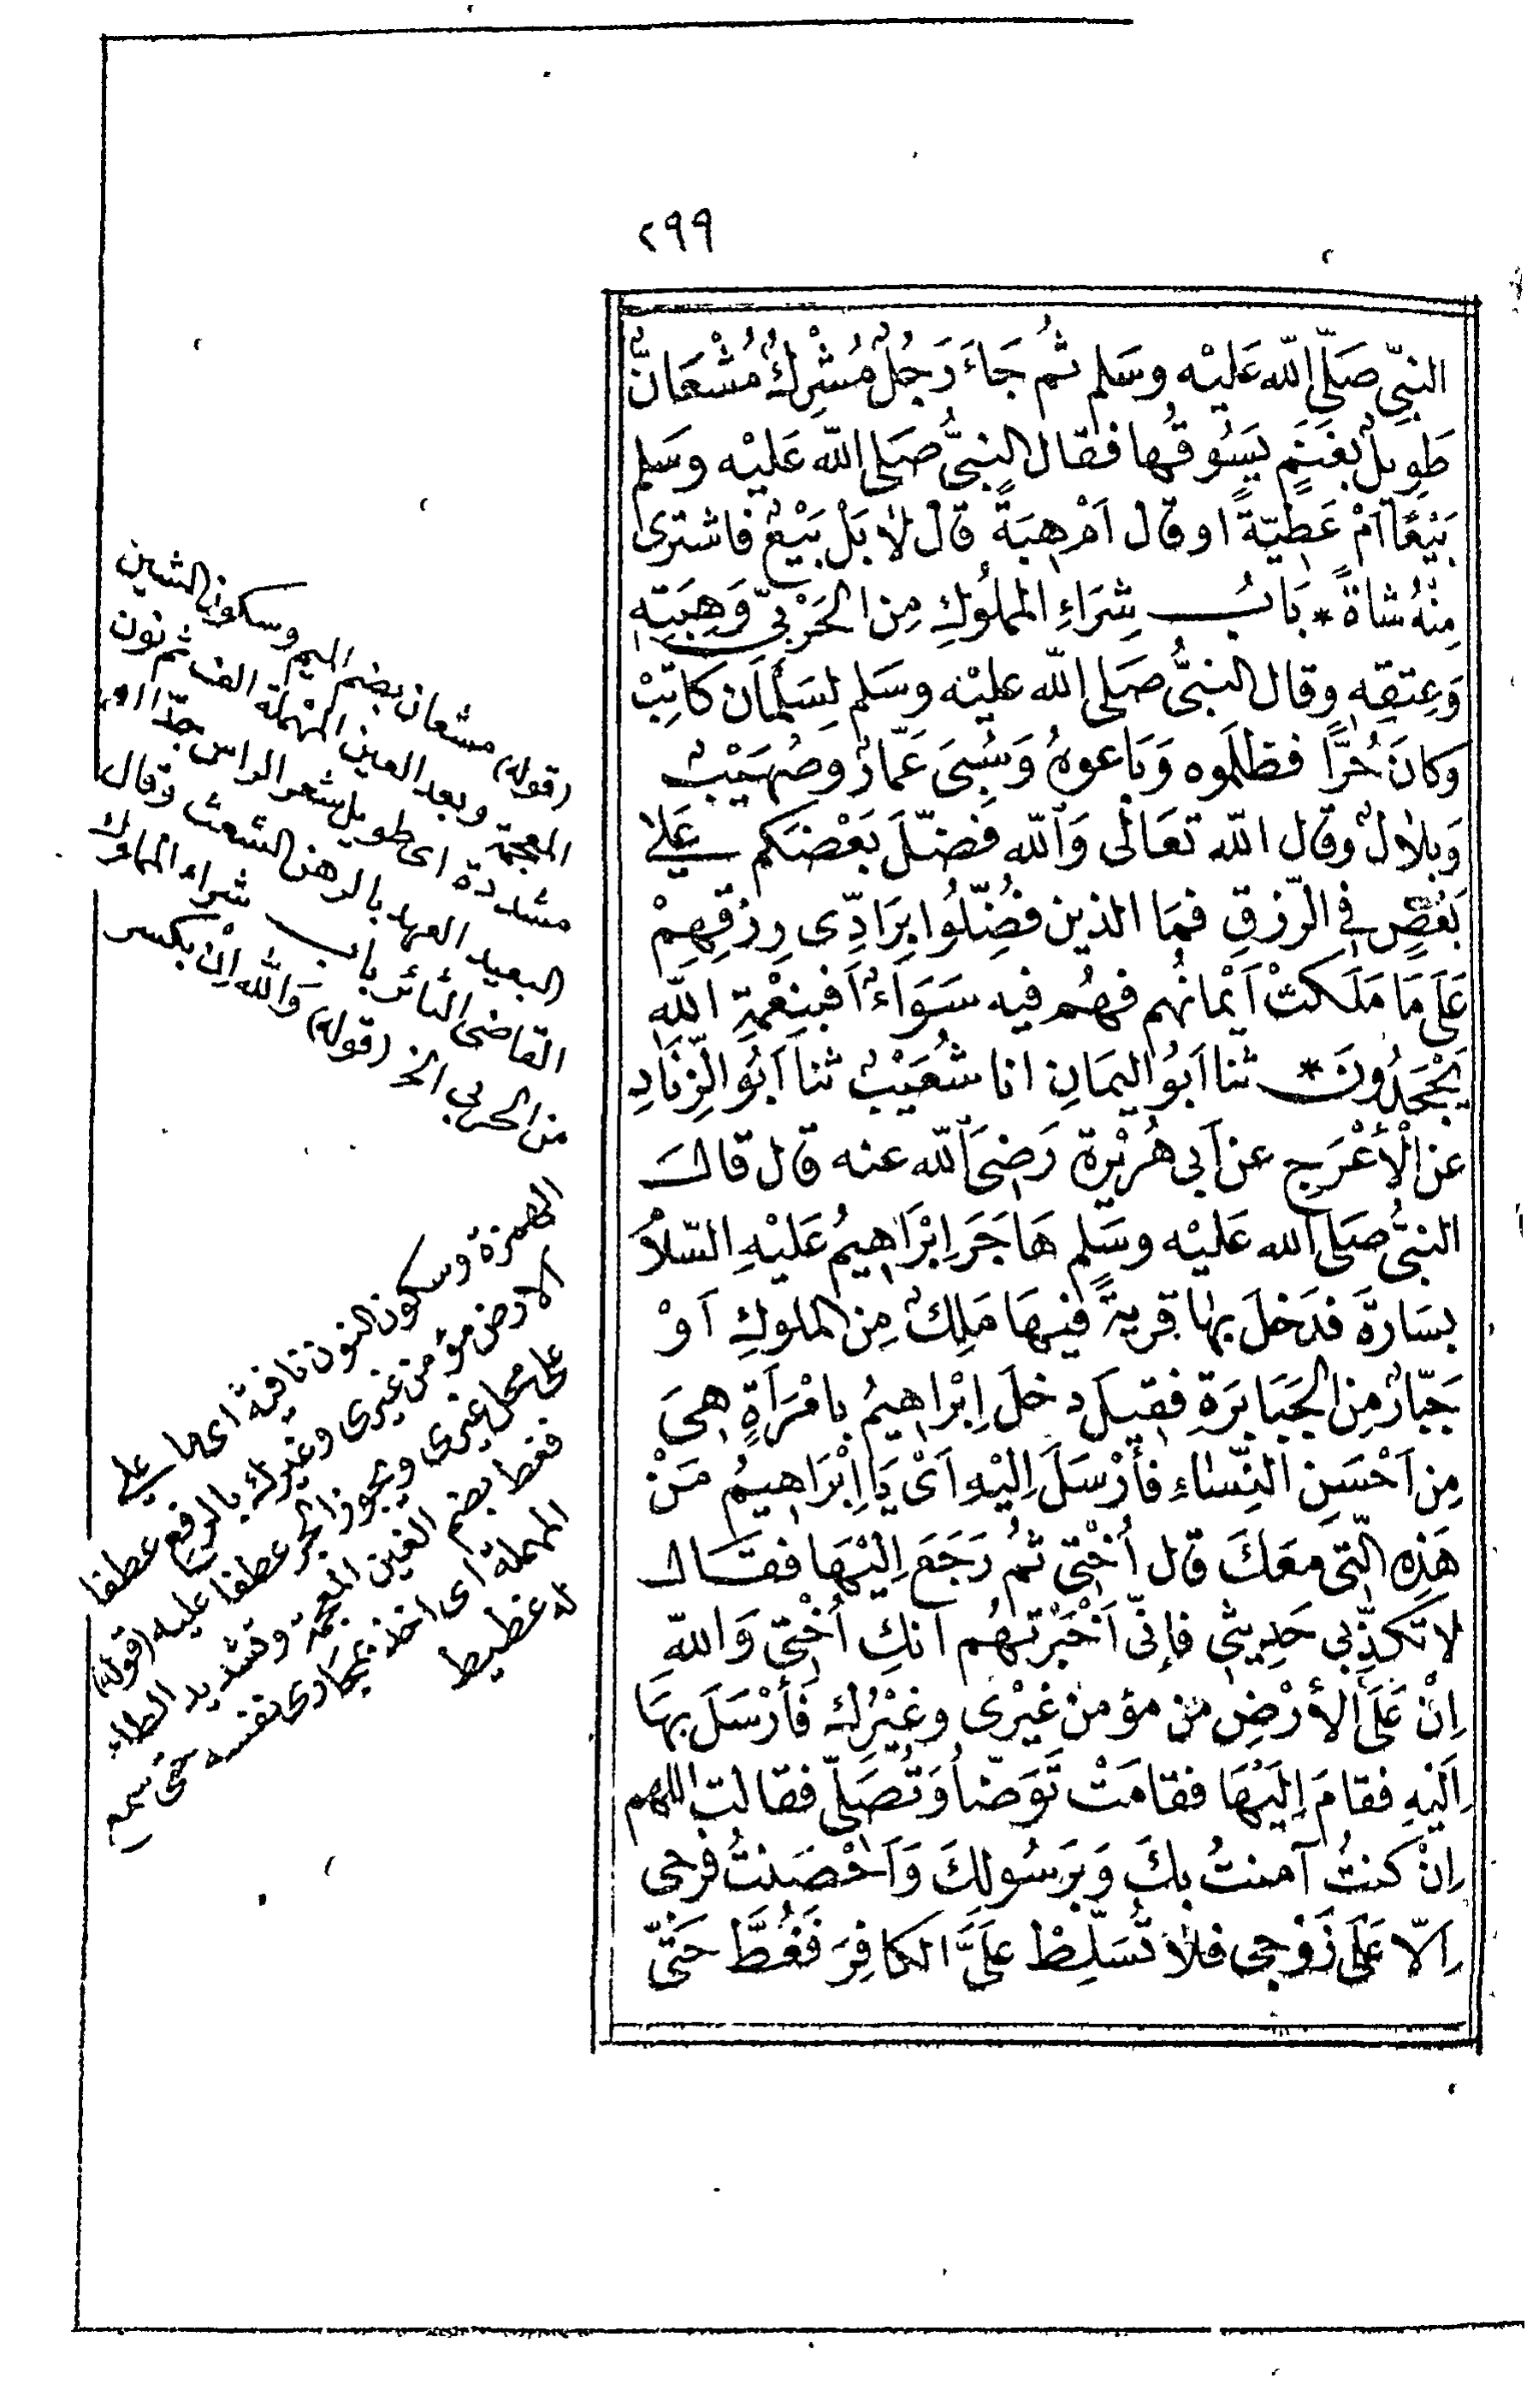 ٢٩٩
النبِّى صَلَّى اللّٰه عَليْه وسَلم ثمُ جَاءَ رَجُلٌ مُشْرِكٌ مُشْعَانٌّ
طَوِيلٌ بغَنَمٍ يَسُوقُها فقال النبىُّ صَلى اللّٰه عَليْه وسَلم
بَيْعًا اَمْ عَطِيّةً او قال اَمْ هِبَةً قال لاٰ بَلْ بَيْعٌ فاشترى
مِنْهُ شاةً * بَابُ شِرَاءِ المملُوكِ مِن الحَرْبىِّ وَهِبَتِهِ
وَعِتقِهِ وقال النبىُّ صَلى اللّٰه عليْه وسَلم لِسَلْمَان كاتِبْ
وكانَ حُرًّا فظلَموه وَبَاعوهُ وَسُبِىَ عَمّارٌ وصُهَيْبٌ
وَبلاٰلٌ وقال اللّٰه تعَالٰى وَاللّٰه فضّلَ بَعْضَكم عَلىٰ
بَعْضٍ فى الرّزقِ فمَا الذين فضِّلُوا بِرَادِّى رِزقِهِمْ
عَلَى مَا مَلَكتْ اَيْمانُهم فهُم فيه سَوَاءٌ اَفبنِعْمَةِ اللّٰهِ
يَجْحَدُونَ * ثنا اَبُو اليمَانِ انا شُعَيْبٌ ثنا اَبُو الزِّنَادِ
عن الْأَعْرَجِ عن اَبى هُرَيْرة رَضِىَ اللّٰه عنه قال قالَ
النبىُّ صَلى اللّٰه عَليْه وسَلم هَاجَرَ اِبْرَاهِيمُ عَلَيْهِ السّلاٰمُ
بسَارَةَ فدَخلَ بهٰا قريةً فيهَا مَلِكٌ مِن الملوكِ اَوْ
جَبّارٌ مِن الجَبَابرَةِ فقيلَ دخلَ اِبْرَاهِيمُ بامْرَأَةٍ هِىَ
مِن اَحْسَنِ النِّسٰاءِ فأَرْسَلَ اِليْهِ اَىْ يَا اِبْرَاهِيمُ مَنْ
هَذِهِ الّتى مَعَكَ قال اُخْتِى ثمُ رَجَعَ اِليْهَا فقَالَ
لا تكذِّبى حَدِيثى فإِنّى اَخْبَرْتهُم انكِ اُخْتِى وَاللّٰهِ
اِنْ عَلَى الأَرْضِ من مؤمن غيْرِى وغيْرُكِ فَأَرْسَلَ بهَا
اِليْهِ فقامَ اِليْهَا فقامَتْ تَوَضّأُ وَتُصَلّى فقالت اللهم
اِنْ كنتُ آمنتُ بكَ وَبرَسُولِكَ وَاَحْصَنتُ فرجى
اِلّا عَلَى زَوْجى فلاٰ تُسَلِّطْ علَىَّ الكافِرَ فَغُطَّ حَتّى
(قوله) مشعان بضم الميم وسكون الشين
المعجمة وبعد العين المهملة الف ثم نون
مشددة اى طويل شعر الراس جدّا او
البعيد العهد بالدهن الشعث وقال
القاضى الثائر باب شراء المملوك
من الحربى الخ (قوله) وَاللّٰه اِنْ بكسر
الهمزة وسكون النون نافية اى ما على
الارض مؤمن غيرى وغيرك بالرفع عطفا
على محل غيرى ويجوز الجر عطفا عليه (قوله)
فغط بضم الغين المعجمة وتشديد الطاء
المهملة اى اخذ بمجارى نفسه حتى سمع
له غطيط